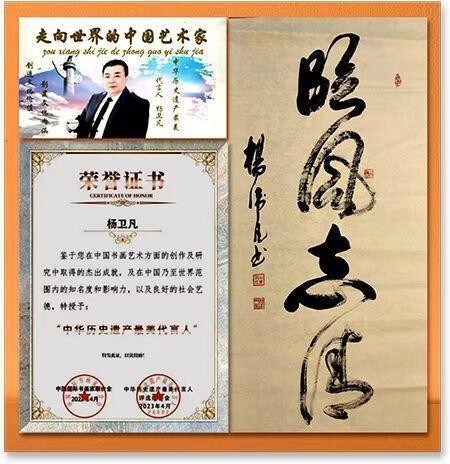 走向世界的中国艺术家
zou xiang shi jie de zhong guo yi shu jia
中华历史遗产最美
代言人 杨卫凡
荣誉证书
CERTIFICATE OF HONOR
杨卫凡
鉴于您在中国书画艺术方面的创作及研
究中取得的杰出成就，及在中国乃至世界范
围内的知名度和影响力，以及良好的社会艺
德，特授予：
“中华历史遗产最美代言人”
特发此证，以资鼓励！
中国国际书画家联合会
2023年4月
中华历史遗产最美代言人
评选组委会
2023年4月
臨風志清
楊衛凡书